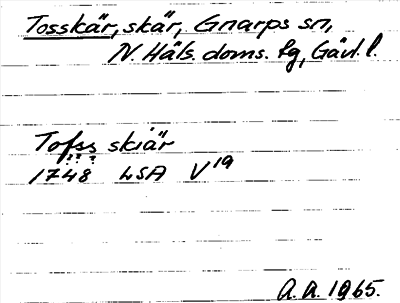 Tosskär, skär, Gnarps sn,
N. Häls. doms. lg, Gävl. l.
Tofss skiär
1748 LSA V19
A.A. 1965.